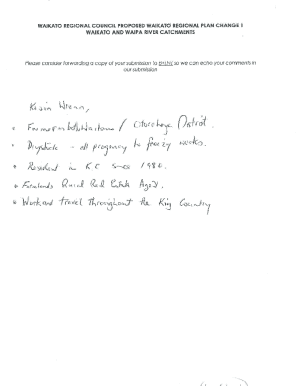 WAIKATO REGIONAL COUNCIL PROPOSED WAIKATO REGIONAL PLAN CHANGE 1
WAIKATO AND WAIPA RIVER CATCHMENTS
Please consider forwarding a copy of your submission to so we can echo your comments in
our submission
Kevin Wrenn,
Farmer in both Waitomo / Otorohanga District.
Drystock - all progeny to weeks.
Resident in K.C since 1980.
* Farmlands Rural Real Estate Agent.
* Work and travel throughout the King Country